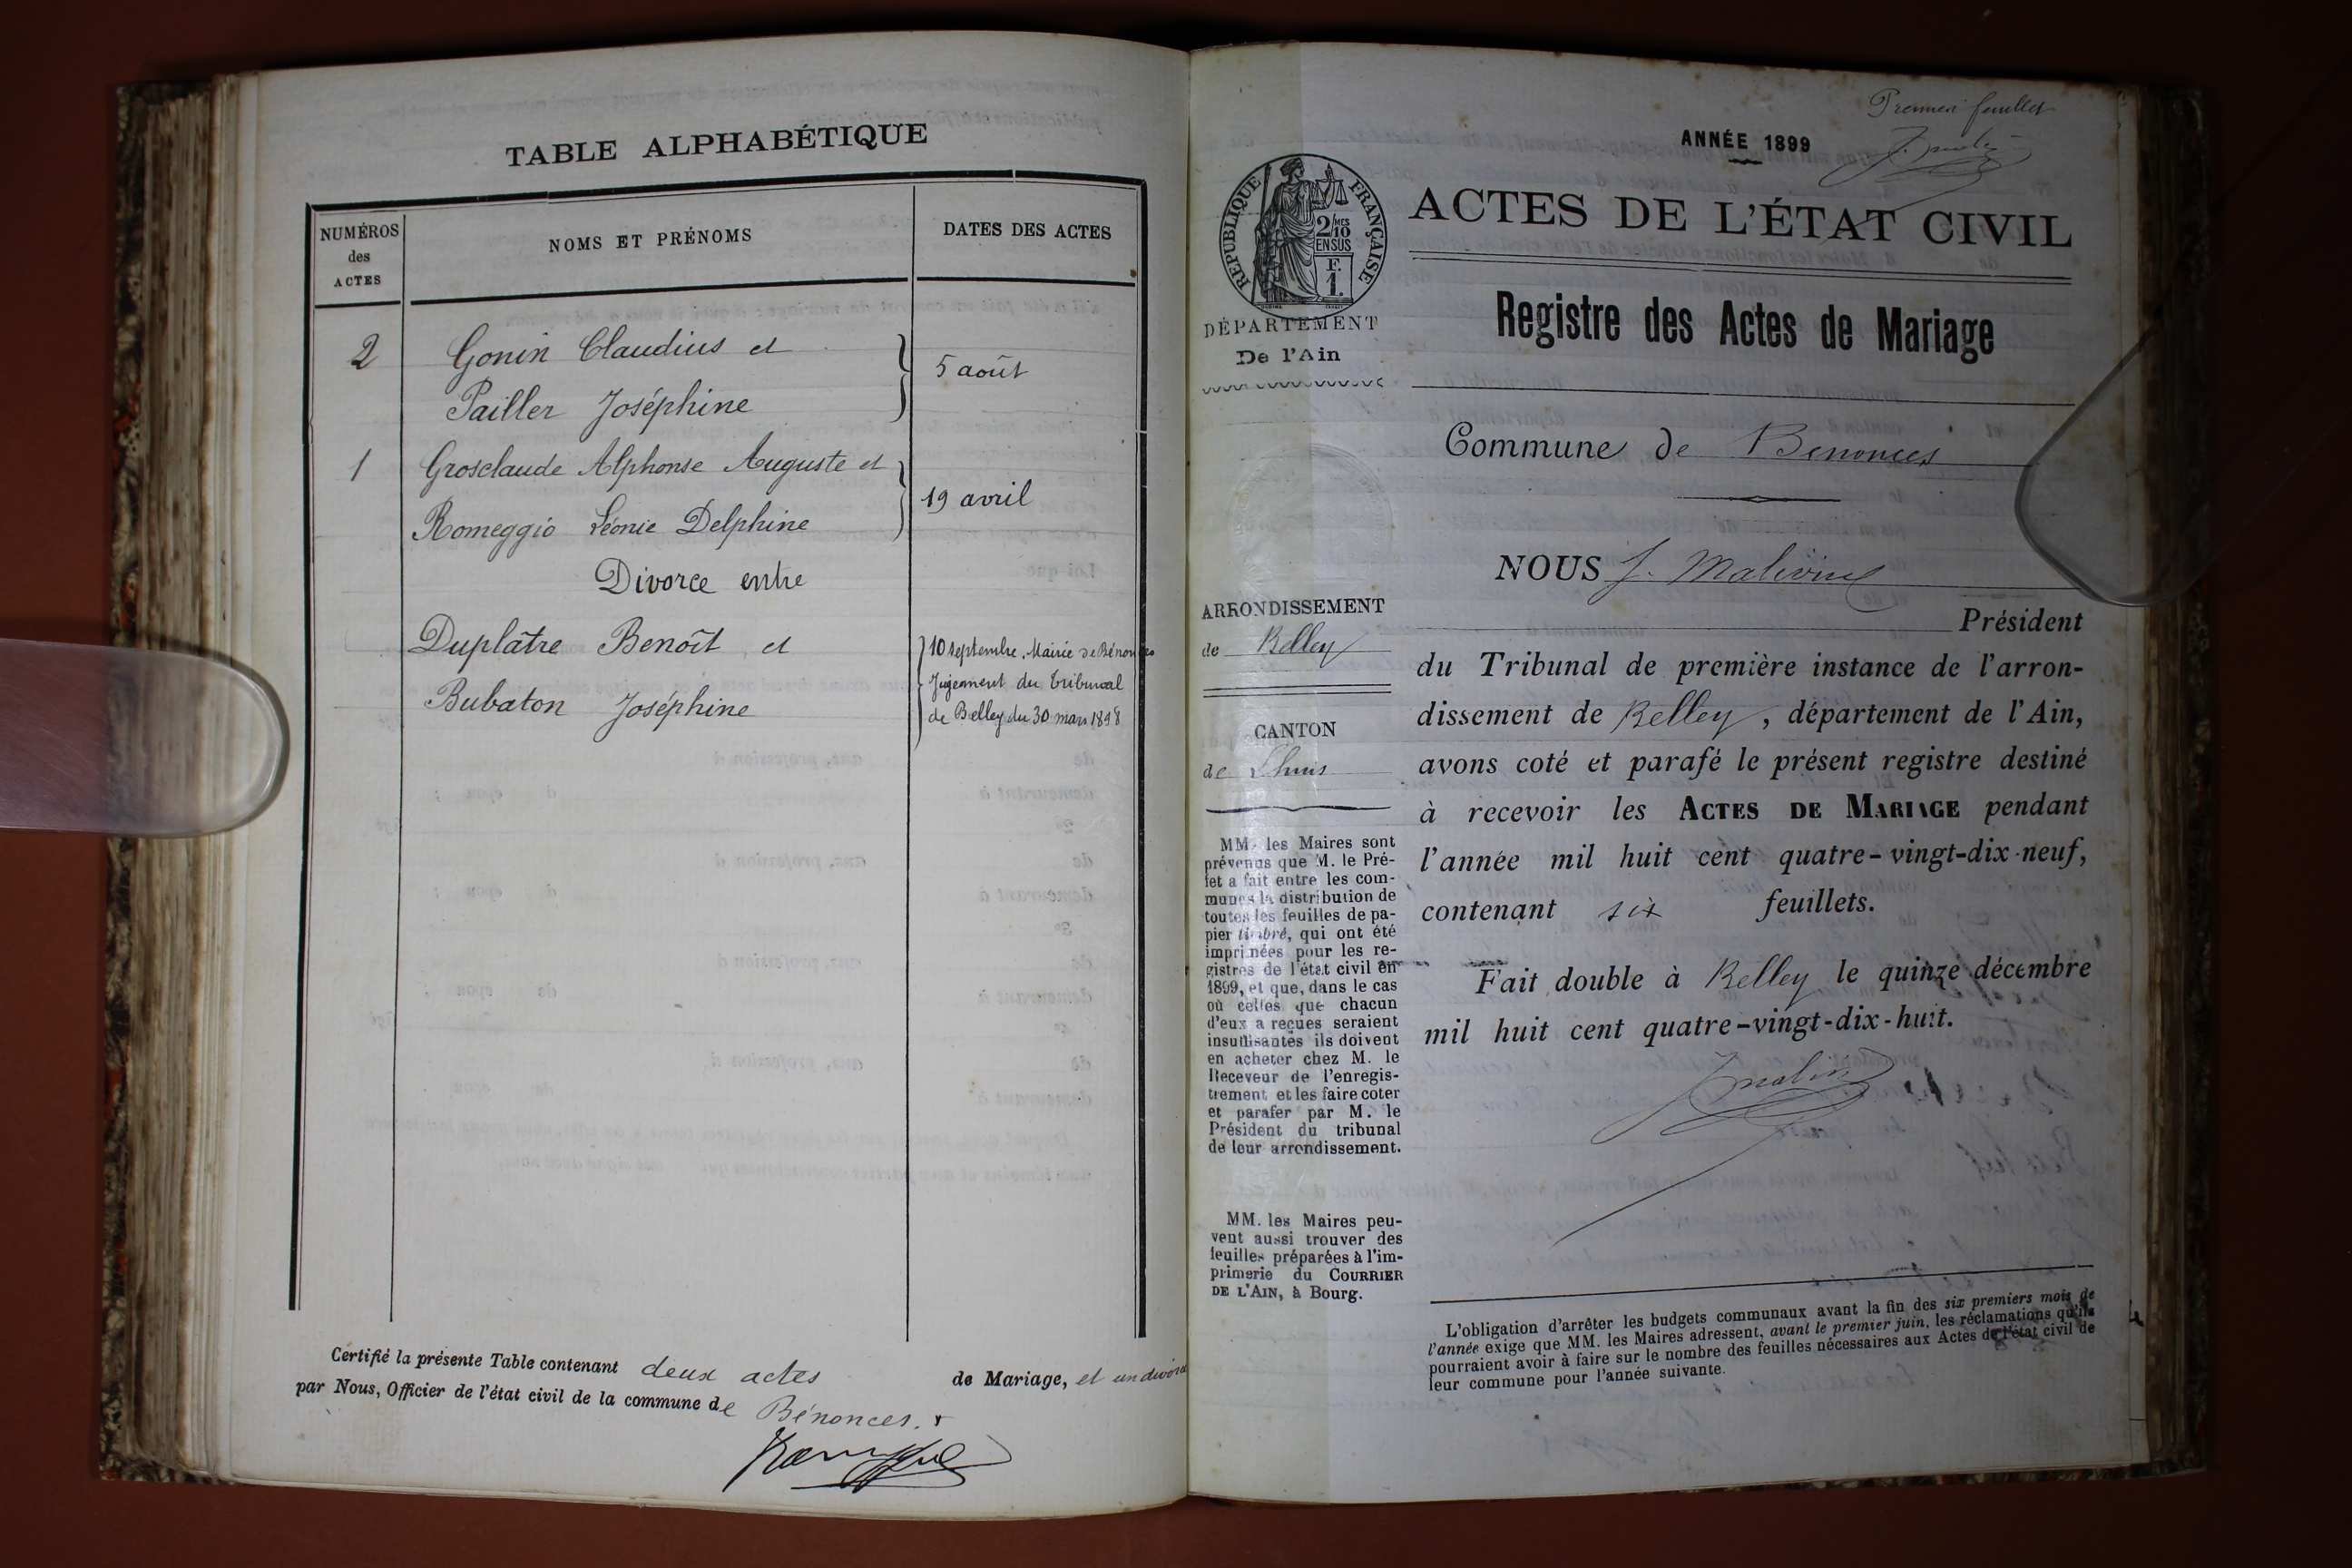 TABLE ALPHABÉTIQUE
NUMÉROS
des
ACTES
NOMS ET PRÉNOMS
DATES DES ACTES
2 Gonin Claudius et
Pailler Joséphine
5 août
1 Grosclaude Alphonse Auguste et
Romeggio Léonie Delphine
19 avril
Divorce entre
Duplâtre Benoît et
Bubaton Joséphine
10 septembre. Mairie de Bénonces
Jugement du tribunal
de Belley du 30 mars 1898
Certifié la présente Table contenant deux actes de Mariage, et un divorce
par Nous, Officier de l'état civil de la commune de Bénonces.
Premier feuillet
ANNÉE 1899
RÉPUBLIQUE FRANÇAISE
2/10 MES
EN SUS
F.
1.
DÉPARTEMENT
De l'Ain
ACTES DE L'ÉTAT CIVIL
Registre des Actes de Mariage
Commune de Benonces
ARRONDISSEMENT
de Belley
CANTON
de Lhuis
MM. les Maires sont
prévenus que M. le Pré-
fet a fait entre les com-
munes la distribution de
toutes les feuilles de pa-
pier timbré, qui ont été
imprimées pour les re-
gistres de l'état civil en
1899, et que, dans le cas
où celles que chacun
d'eux a reçues seraient
insuffisantes ils doivent
en acheter chez M. le
Receveur de l'enregis-
trement et les faire coter
et parafer par M. le
Président du tribunal
de leur arrondissement.
MM. les Maires peu-
vent aussi trouver des
feuilles préparées à l'im-
primerie du COURRIER
DE L'AIN, à Bourg.
NOUS J.
Président
du Tribunal de première instance de l'arron-
dissement de Belley, département de l'Ain,
avons coté et parafé le présent registre destiné
à recevoir les ACTES DE MARIAGE pendant
l'année mil huit cent quatre-vingt-dix-neuf,
contenant six feuillets.
Fait double à Belley le quinze décembre
mil huit cent quatre-vingt-dix-huit.
L'obligation d'arrêter les budgets communaux avant la fin des six premiers mois de
l'année exige que MM. les Maires adressent, avant le premier juin, les réclamations qu'ils
pourraient avoir à faire sur le nombre des feuilles nécessaires aux Actes de l'état civil de
leur commune pour l'année suivante.